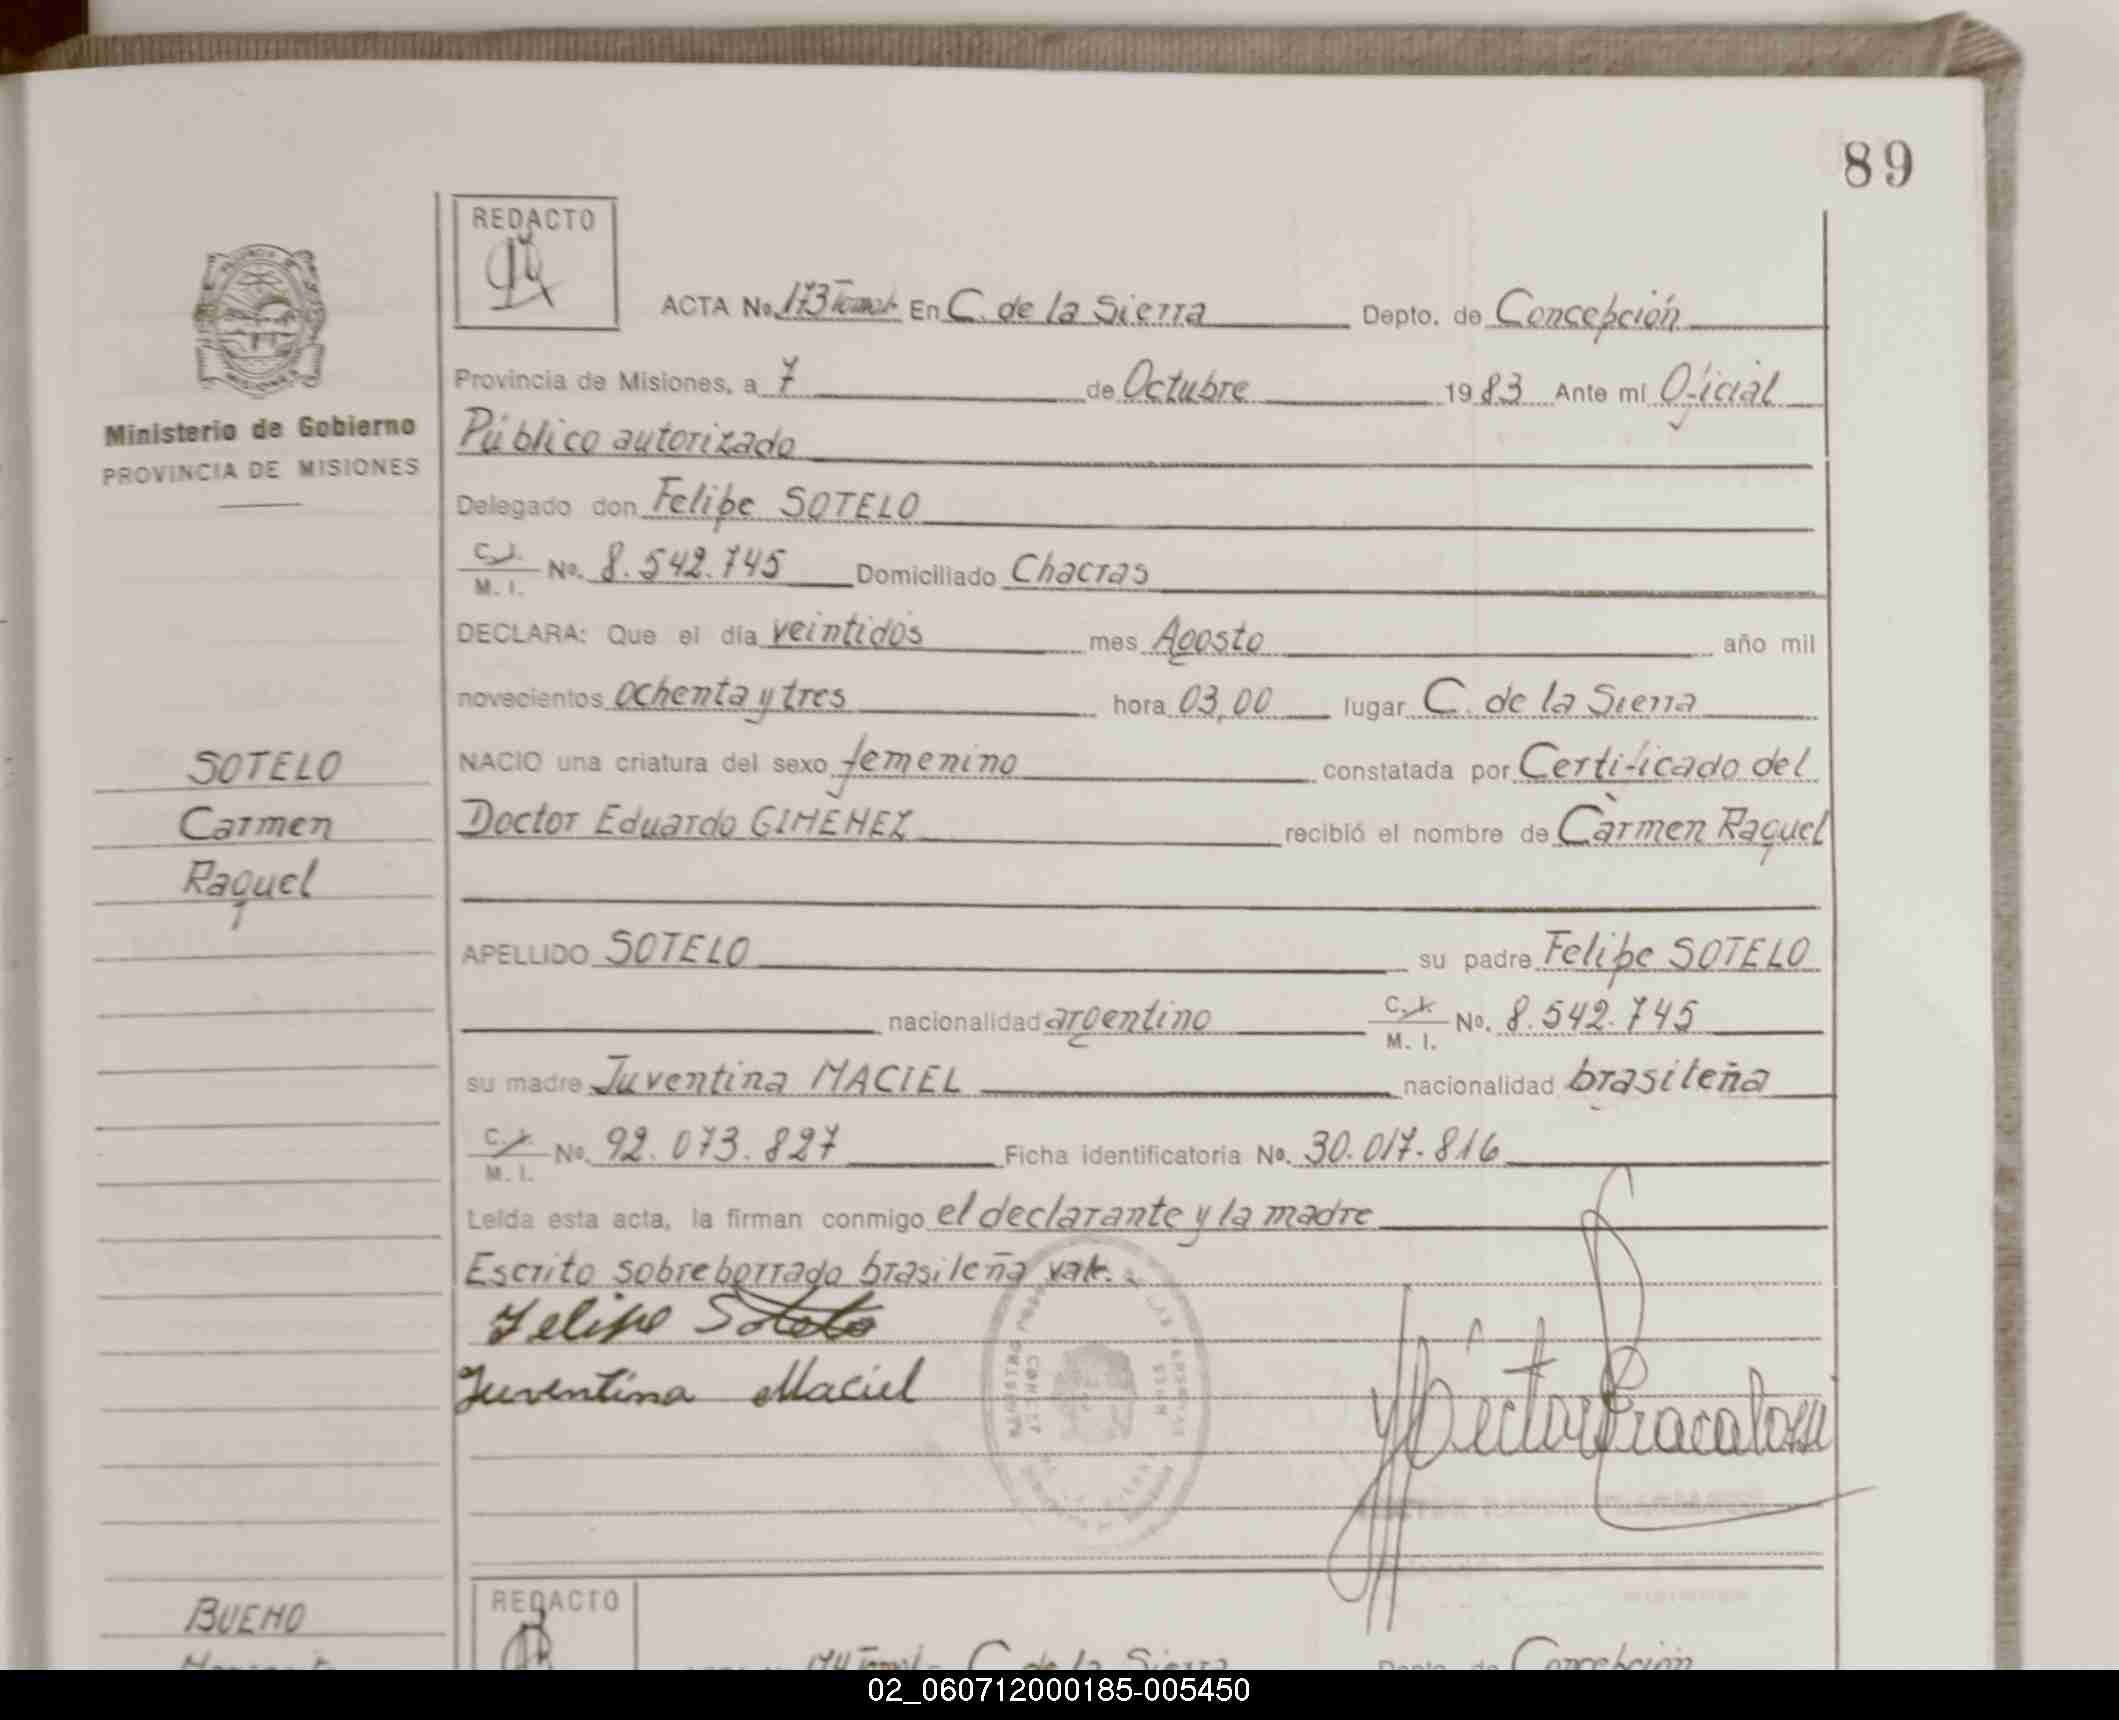 89
REDACTO
ACTA No. 173 Tomo I- En C. de la Sierra Depto. de Concepción
Provincia de Misiones, a 7 de Octubre 1983 Ante mí Oficial
Público autorizado
Ministerio de Gobierno
PROVINCIA DE MISIONES
Delegado don Felipe SOTELO
C. I. / M. I. No. 8.542.745 Domiciliado Chacras
DECLARA: Que el día veintidós mes Agosto año mil
novecientos ochenta y tres hora 03,00 lugar C. de la Sierra
NACIO una criatura del sexo femenino constatada por Certificado del
Doctor Eduardo GIMENEZ recibió el nombre de Carmen Raquel
SOTELO
Carmen
Raquel
APELLIDO SOTELO su padre Felipe SOTELO
nacionalidad argentino C. I. / M. I. No. 8.542.745
su madre Juventina MACIEL nacionalidad brasileña
C. I. / M. I. No. 92.073.827 Ficha identificatoria No. 30.017.816
Leída esta acta, la firman conmigo el declarante y la madre
Escrito sobre borrado brasileña vale.
Felipe Sotelo
Juventina Maciel
BUENO
REDACTO
C. de la Sierra Depto. de Concepción
02_060712000185-005450